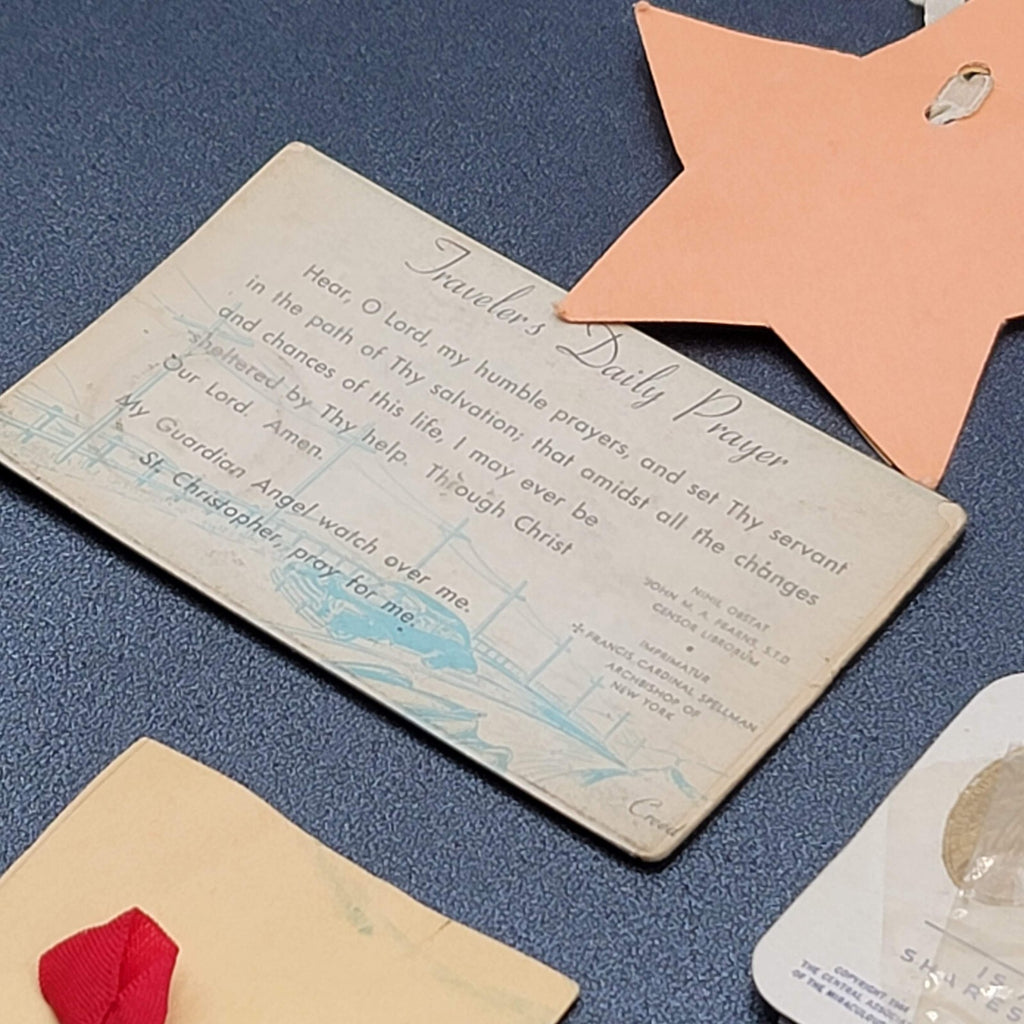 Traveler's Daily Prayer
Hear, O Lord, my humble prayers, and set Thy servant
in the path of Thy salvation; that amidst all the changes
and chances of this life, I may ever be
sheltered by Thy help. Through Christ
Our Lord. Amen.
My Guardian Angel watch over me.
St. Christopher, pray for me.
NIHIL OBSTAT
JOHN M. A. FEARNS, S.T.D.
CENSOR LIBRORUM
•
IMPRIMATUR
✢ FRANCIS, CARDINAL SPELLMAN
ARCHBISHOP OF
NEW YORK
Creed
IS
SHARES
COPYRIGHT
THE CENTRAL
OF THE